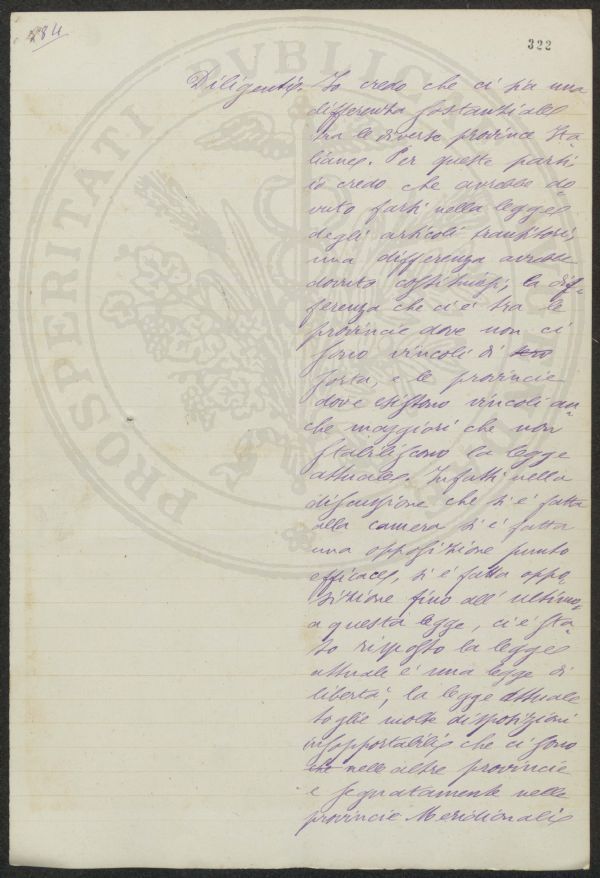 284
322
PROSPERITATI PVBLICAE
Diligenti. Io credo che ci sia una
differenza sostanziale
tra le diverse provincie Ita
liane. Per queste parti
io credo che avrebbe do
vuto farsi nella legge
degli articoli transitori,
una differenza avrebbe
dovuto costituirsi; la dif-
ferenza che ci è tra le
provincie dove non ci
sono vincoli di
sorta, e le provincie
dove esistono vincoli an
che maggiori che non
stabiliscono la legge
attuale. Infatti nella
discussione che si è fatta
alla camera si è fatta
una opposizione punto
efficace, si è fatta oppo
sizione fino all' ultimo
a questa legge, ci è sta
to risposto la legge
attuale è una legge di
libertà, la legge attuale
toglie molte disposizioni
insopportabili che ci sono
che nelle altre provincie
e segnatamente nelle
provincie Meridionali